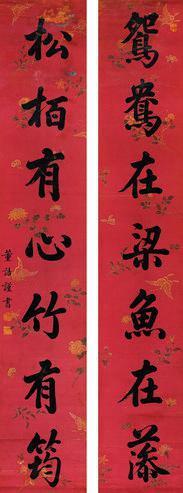 鴛鴦在梁魚在藻
松柏有心竹有筠
董誥謹書